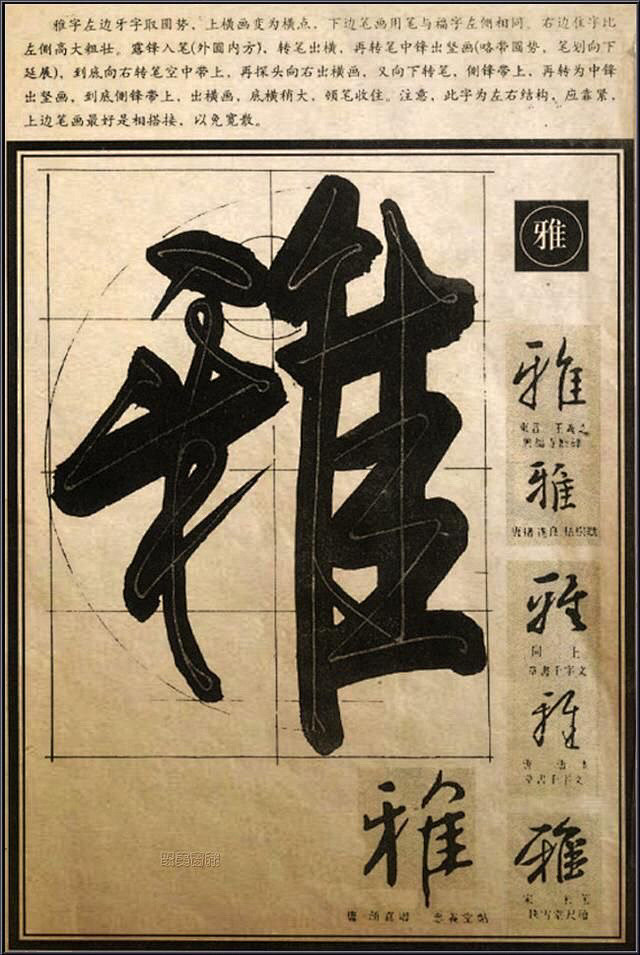 雅字左边牙字取圆势，上横画变为横点，下边笔画用笔与福字左侧相同。右边住字比
左侧高大粗壮。露锋入笔(外圆内方)，转笔出横，再转笔中锋出竖画(略带圆势，笔划向下
延展)，到底向右转笔空中带上，再探头向右出横画，又向下转笔，侧锋带上，再转为中锋
出竖画，到底侧锋带上，出横画，底横稍大，顿笔收住。注意，此字为左右结构，应靠紧，
上边笔画最好是相搭接，以免宽散。
雅
雅
雅
東晋 王羲之
興福寺斷碑
雅
雅
同上
草書千字文
雅
草書千字文
雅
雅
唐 顔真卿 忠義堂帖